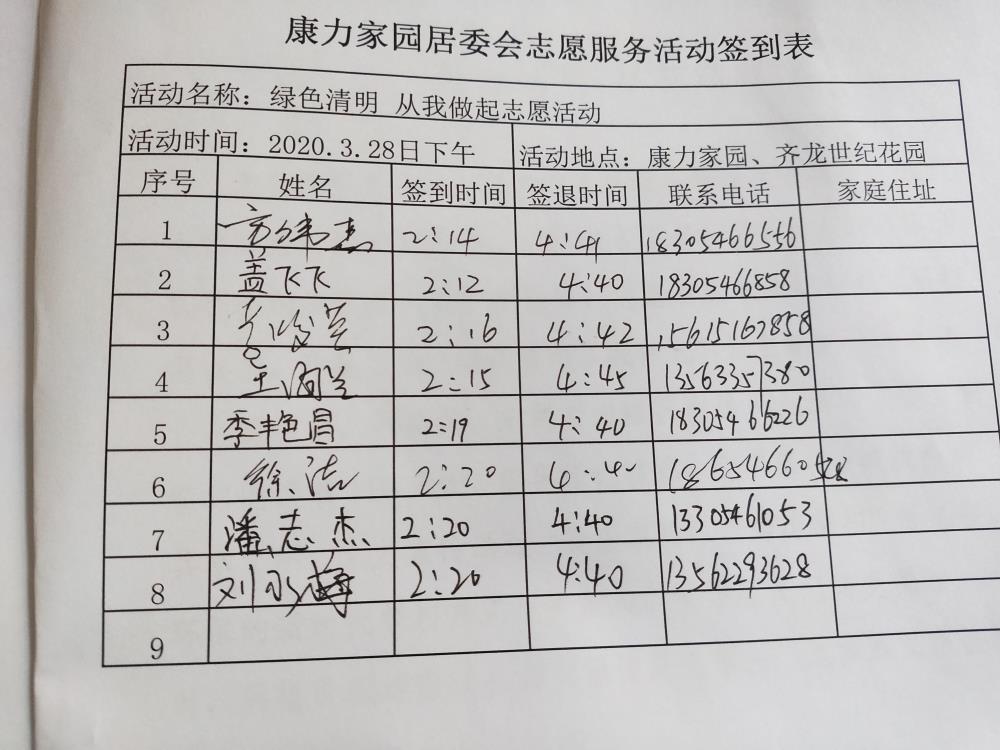 康力家园居委会志愿服务活动签到表
活动名称：绿色清明 从我做起志愿活动
活动时间：2020.3.28日下午 活动地点：康力家园、齐龙世纪花园
序号 姓名 签到时间 签退时间 联系电话 家庭住址
1 2:14 4:41 18305466556
2 盖飞飞 2:12 4:40 18305466858
3 2:16 4:42 15615167858
4 2:15 4:45 13563357380
5 季丰艳昌 2:19 4:40 18305466226
6 徐洁 2:20
7 潘志杰 2:20 4:40 13305461053
8 刘永梅 2:20 4:40 13562293628
9